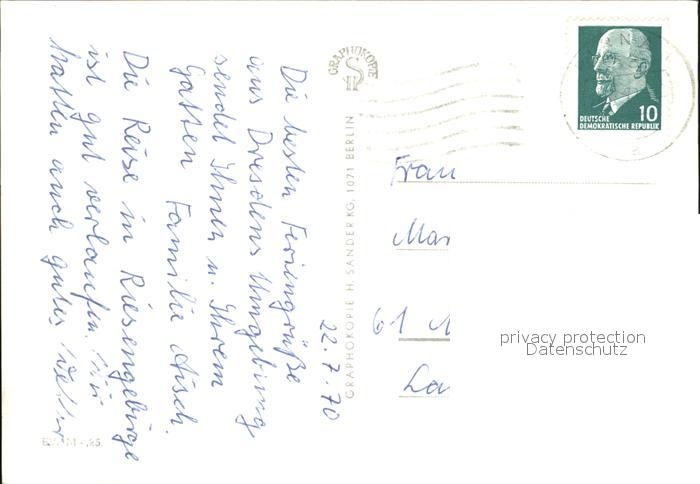 22.7.70
Die besten Feriengrüße
aus Dresdens Umgebung
sendet Ihnen u. Ihrem
Gatten Familie
Die Reise in Riesengebirge
ist gut verlaufen. Wir
hatten auch gutes Wetter
GRAPHOKOPIE
GRAPHOKOPIE H. SANDER KG, 1071 BERLIN
10
DEUTSCHE
DEMOKRATISCHE REPUBLIK
Frau
Mar
61
La
privacy protection
Datenschutz